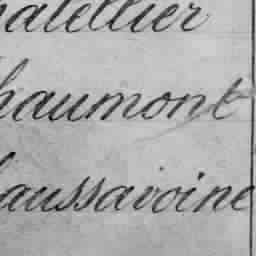 hatellier
haumont
haussavoine